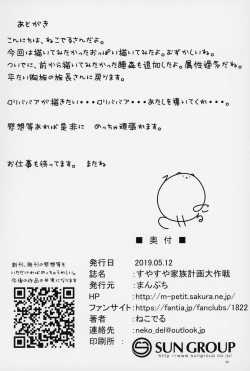 あとがき
こんにちは、ねこでるさんだよ。
今回は描いてみたかったおっぱい描いてみたよ。むずかしいね。
ついでに、前から描いてみたかった睡姦も追加したよ。属性過多だね。
平たい胸族の族長さんに戻ります。
ロリババアが描きたい・・・ロリババア・・・あたしを導いてくれ・・・。
感想等あれば是非に めっちゃ頑張れます。
お仕事も待ってます。 またね
■ 奥 付 ■
発行日 2019.05.12
誌名: すやすや家族計画大作戦
発行元: まんぷち
HP http://m-petit.sakura.ne.jp/
ファンサイト: https://fantia.jp/fanclubs/1822
著者: ねこでる
連絡先 neko_del@outlook.jp
印刷所: SUN GROUP
http://www.sungroup.co.jp/